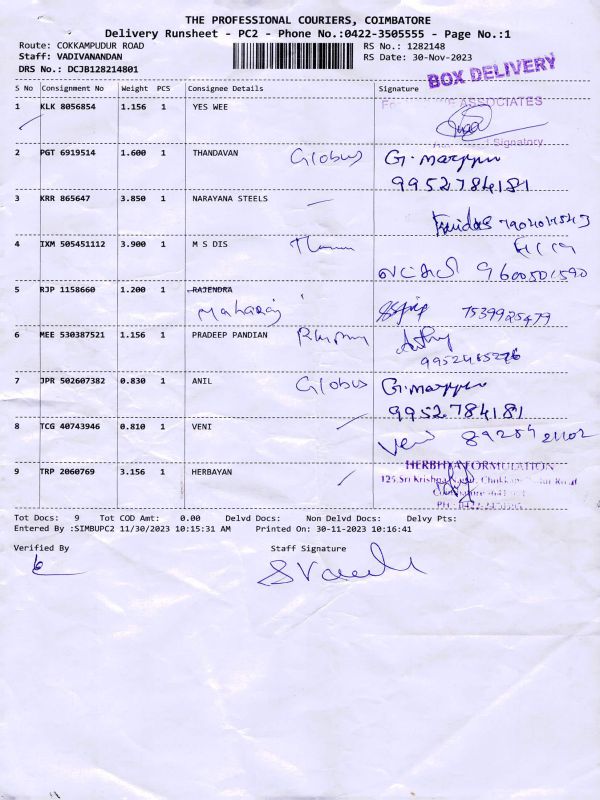 THE PROFESSIONAL COURIERS, COIMBATORE
Delivery Runsheet - PC2 - Phone No.:0422-3505555 - Page No.:1
Route: COKKAMPUDUR ROAD RS No.: 1282148
Staff: VADIVANANDAN RS Date: 30-Nov-2023
DRS No.: DCJB128214801
BOX DELIVERY
S No Consignment No Weight PCS Consignee Details Signature
1 KLK 8056854 1.156 1 YES WEE
ASSOCIATES
Signatory
2 PGT 6919514 1.600 1 THANDAVAN Globus G. mariyppan
9952784181
3 KRR 865647 3.850 1 NARAYANA STEELS
4 IXM 505451112 3.900 1 M S DIS
9600501590
5 RJP 1158660 1.200 1 RAJENDRA
Maharaj 7539925479
6 MEE 530387521 1.156 1 PRADEEP PANDIAN
7 JPR 502607382 0.830 1 ANIL Globus
9952784181
8 TCG 40743946 0.810 1 VENI
Veni
9 TRP 2060769 3.156 1 HERBAYAN
HERBHYA FORMULATION
125, Sri Krishna
Tot Docs: 9 Tot COD Amt: 0.00 Delvd Docs: Non Delvd Docs: Delvy Pts:
Entered By :SIMBUPC2 11/30/2023 10:15:31 AM Printed On: 30-11-2023 10:16:41
Verified By Staff Signature